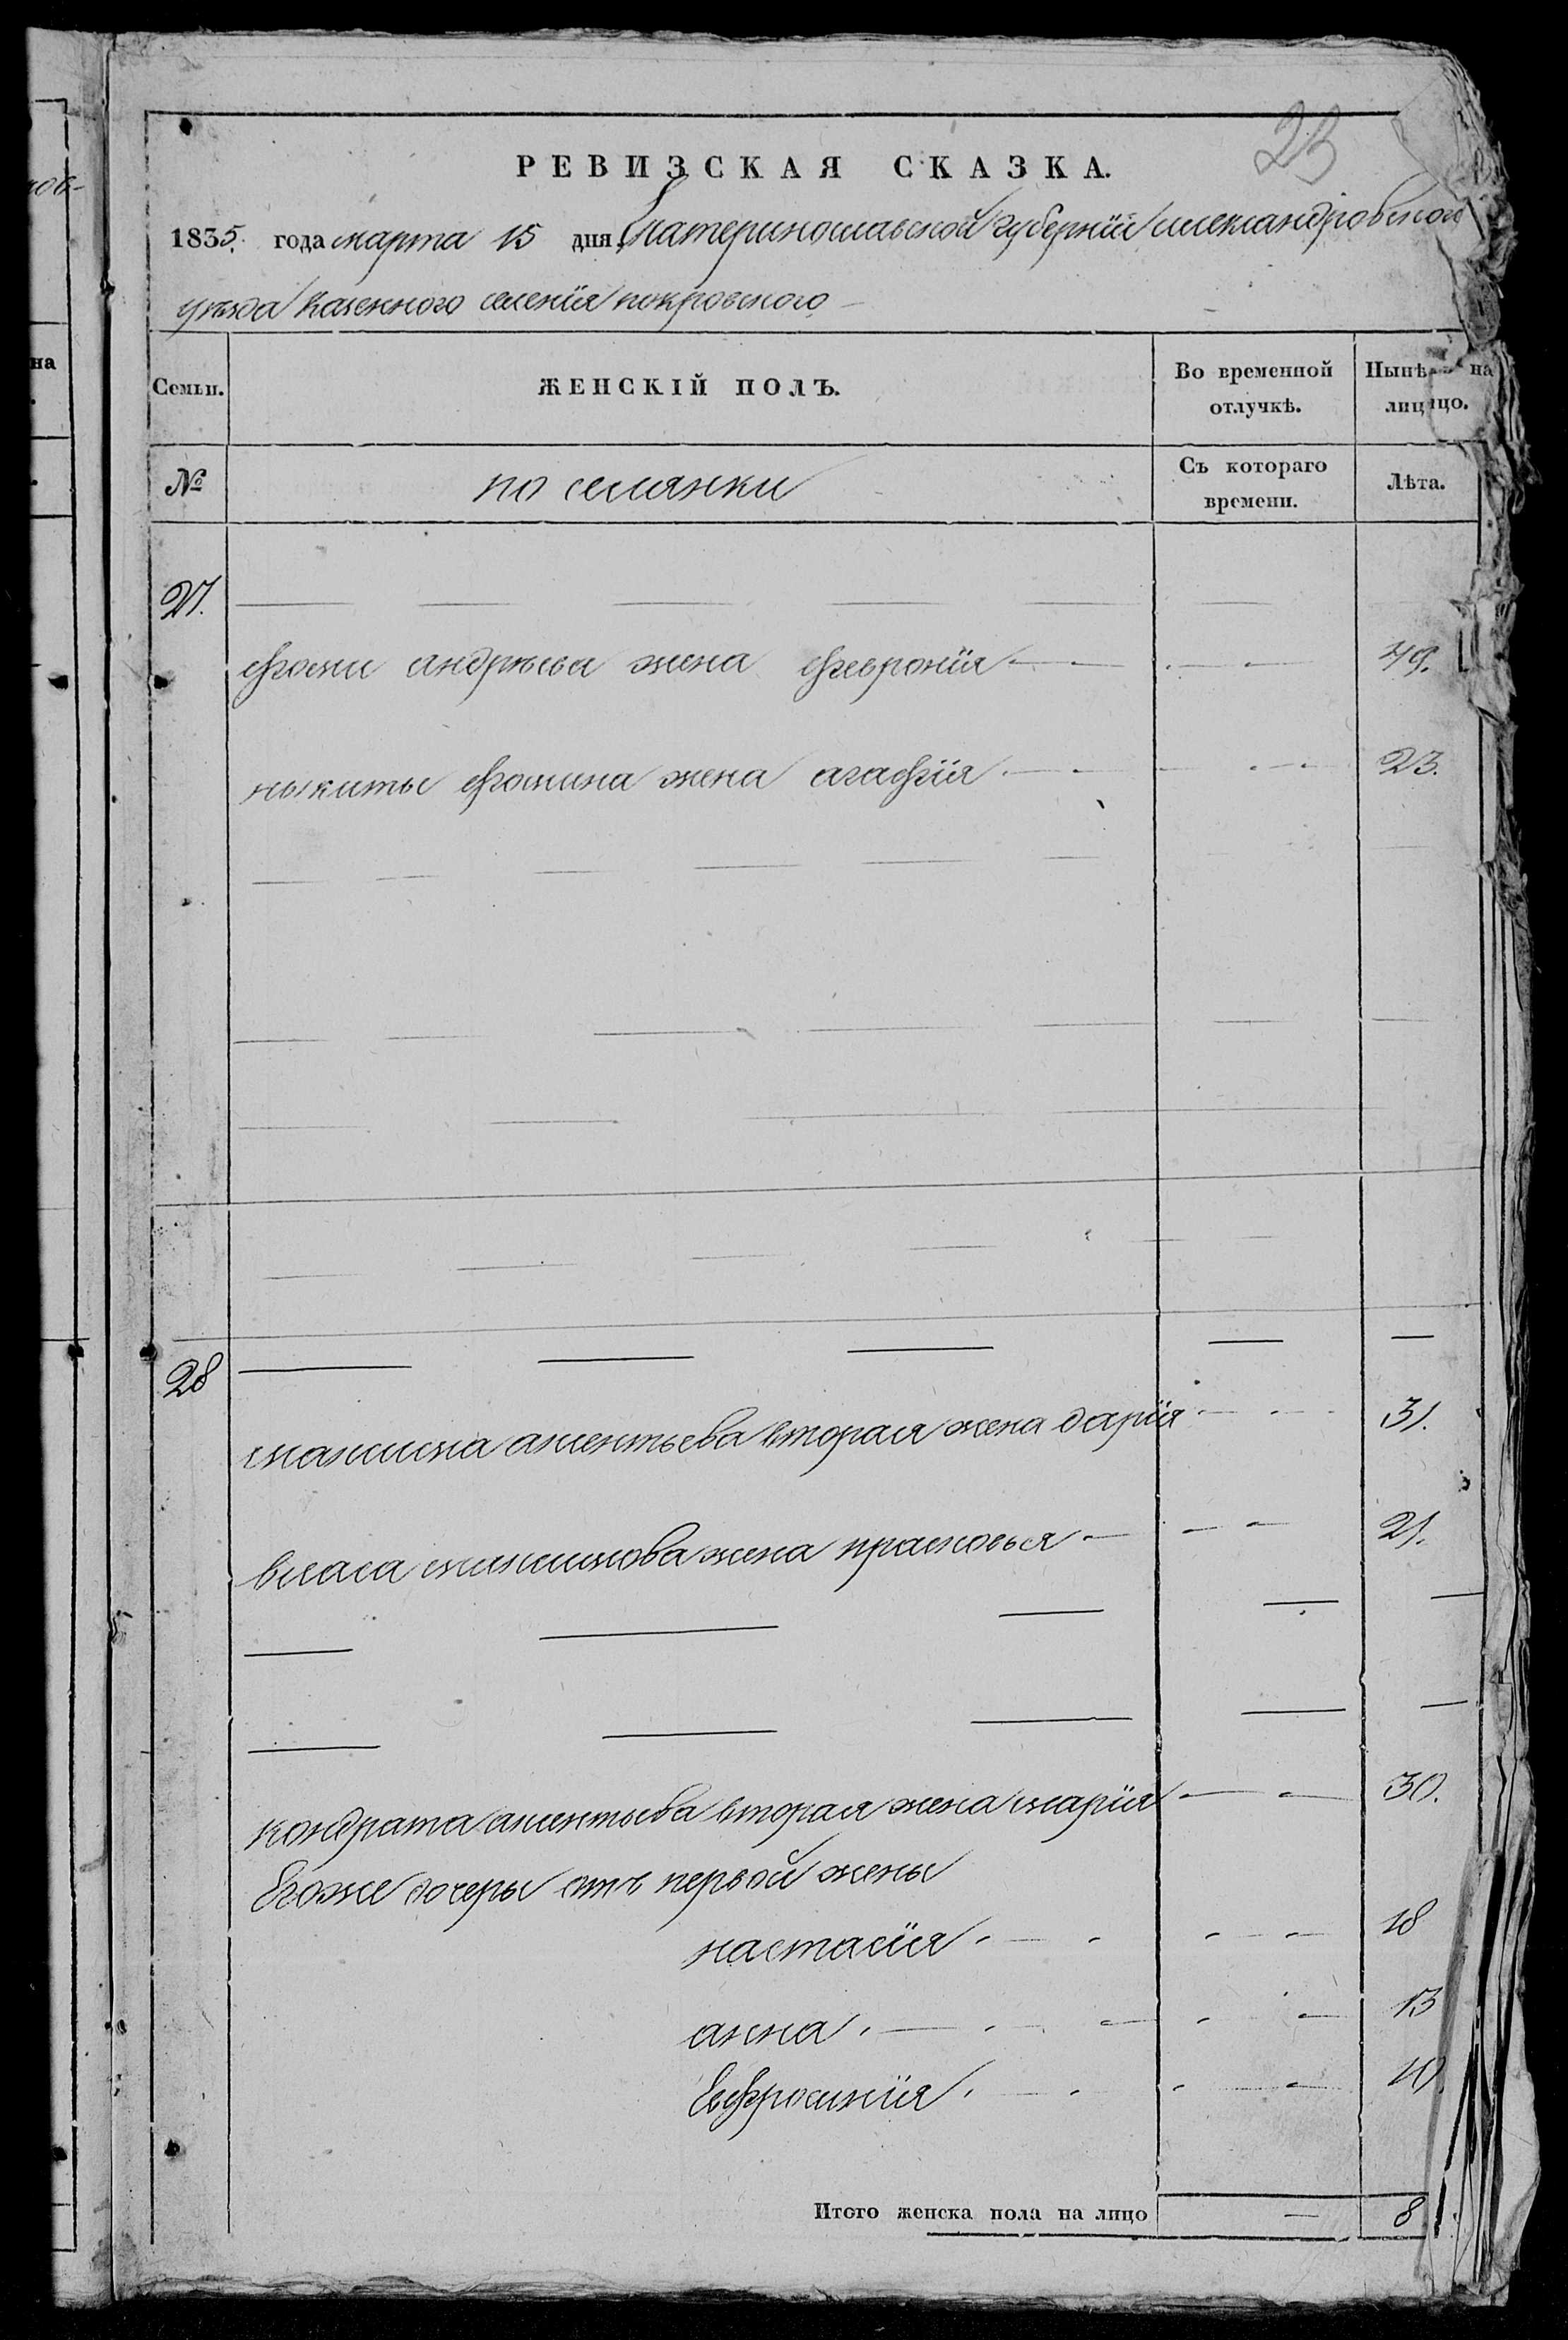 23
РЕВИЗСКАЯ СКАЗКА.
1835. года марта 15 дня Екатеринославской губернїи александровского
уезда казенного селенїя покровского
Семьи. ЖЕНСКІЙ ПОЛЪ. Во временной отлучкѣ. Нынѣ на лицо.
№ поселянки Съ котораго времени. Лѣта.
27.
фомы андрѣева жена феβронїя 49.
ныкиты фомина жена агафїя 23.
28
максима аментьева вторая жена дарїя 31.
власа максимова жена прасковья 21.
кондрата аментьева вторая жена марїя 30.
Егоже дочеры отъ первой жены
настасїя 18
анна 13
Евфросинїя 10.
Итого женска пола на лицо — 8